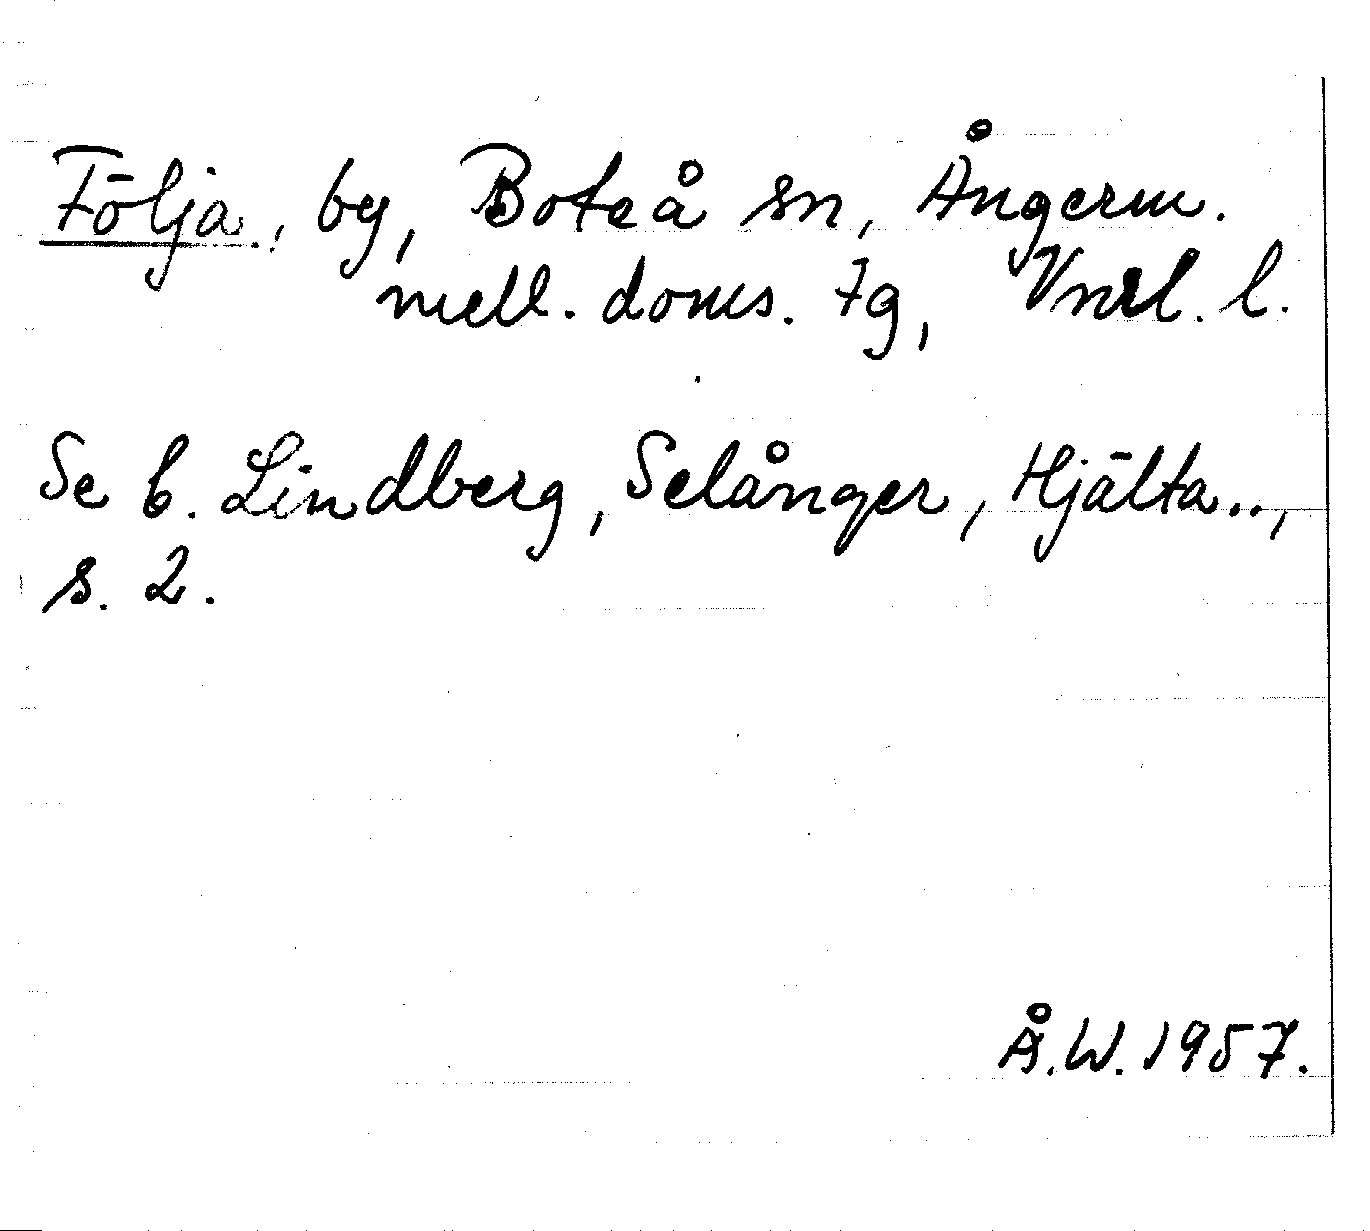 Följa, by, Boteå sn, Ångerm.
mell. doms. tg, Vnrl. l.
Se b. Lindberg, Selånger, Hjälta..,
s. 2.
Å.W. 1957.